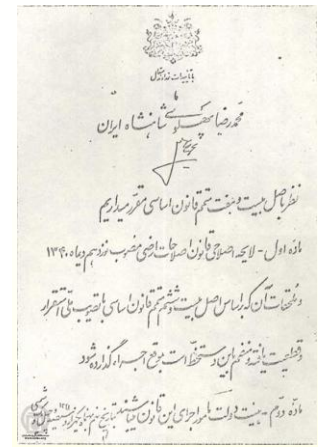 با تأییدات خداوند متعال
ما
محمد رضا پهلوی شاهنشاه ایران
نظر باصل بیست و هفت متمم قانون اساسی مقرر میداریم
ماده اول - لایحه اصلاحی قانون اصلاحات ارضی مصوب نوزدهم دیماه ۱۳۴۰
و ملحقات آن که بر اساس اصل بیست و ششم متمم قانون اساسی با تصویب ملی استقرار
و قطعیت یافته و منضم باین دستخط است بموقع اجراء گذارده شود
ماده دوم - هیئت دولت مأمور اجرای این قانون میباشند